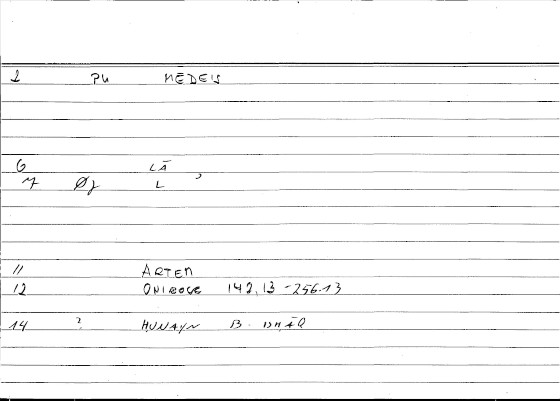 1 PU MĒDEIS
6 LĀ
7 ØJ L ,
11 ARTEM
12 ONIROCR 142,13-256.13
14 ? HUNAYN B. ISḤĀQ